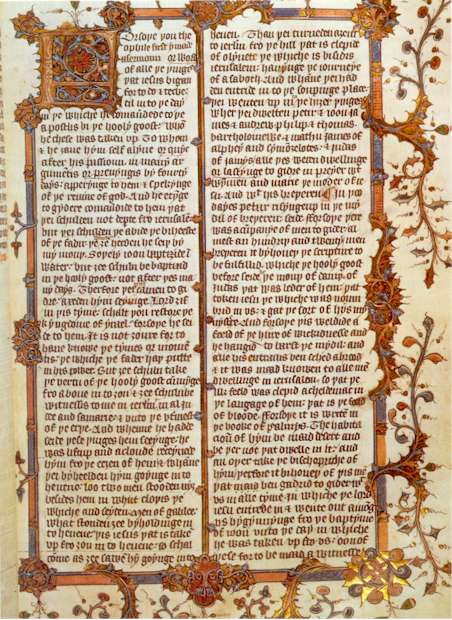 Forsoþe you the
ophile first I mad
a sermoun or word
of alle þe þinges
þat iesus bigan
for to do & teche
til in to þe day
in þe whiche he comaundede to þe
apostlis bi þe hooly goost who
he chees was taken up To whom
& he ȝaue hym self alyue or quyk
after his passioun in many ar
gumentis or preuyngis by fourti
dayes apperynge to hem & spekynge
of þe reume of god And he etynge
to gydere comaundide to hem þat
þei schulden not departe fro ierusalem
but þei schulden abide þe biheeste
of þe fader þe ȝe herden he seiþ by
my mouþ Soþely ioon baptizede in
water but ȝee schulen be baptisid
in þe hooly goost not after þes ma
ny days Therfore þei camen to gi
dre axeden hym seyinge Lord ȝif
in þis tyme schalt þou restore þe
kyngdome of israel forsoþe he sei
de to hem It is not ȝoure for to
haue knowe þe tymes or momen
tis þe whiche þe fader haþ putte
in his power But ȝee schulen take
þe vertu of þe hooly goost comynge
fro aboue in to ȝou & ȝee schulen be
witnessis to me in ierusalem in al ju
dee and samarie & into þe vtmest
of þe erþe And whenne he hadde
seide þese þinges hem seeynge he
was liftup and a cloude receyuede
hym fro þe eyen of hem & whane
þei byheelden hym goynge in to
heuene loo two men stooden ny
besides hem in whit cloþis þe
whiche and seyden Men of galilee
what stonden ȝee byholdinge in
to heuene þis iesus þat is take
up fro ȝou in to heuene so schal
come as ȝee sawe hym goynge in to
heuen Than þei turneden aȝein
to ierusalem fro þe hil þat is clepid
of olyuete þe whiche is bisidis
ierusalem hauynge þe iourneye
of a saboth And whane þei had
den entride in to þe soupinge place
þei wenten up in þe hiȝer þinges
wher þei dwelten petir & ioon ja
mes & andrew philip & thomas
bartholomewe & mathu james of
alphey and symon zelotes & judas
of james alle þes weren dwellinge
or lastynge to gidir in preyer wiþ
wymmen and marie þe moder of ie
su and wiþ his breþeren In þo
dayes petir risynge up in þe my
dil of breþeren seide forsoþe þere
was a cumpanye of men to gider al
mest an hundrid and twenty men
breþeren it byhoueþ þe scripture to
be fulfillid whiche þe hooly goost
before seide þe mouþ of dauid of
judas þat was leder of hem þat
token iesu þe whiche was noum
brid in us & gat þe sort of þis my
nysterie And forsoþe þis weldide a
feeld of þe hire of wickidnesse and
he hangid to barst þe mydil and
alle his entrails ben sched abrood
& it was maad knowen to alle men
dwellinge in ierusalem so þat þe
ilk feeld was clepid acheldemak in
þe langage of hem þat is þe feeld
of bloode Forsoþe it is writen in
þe booke of psalmys The habita
cioun of hym be maad desert and
be þer not þat dwelle in it and
an oþer take þe bischopriche of
hym þerfore it bihoueþ of þis men
þat maad ben gadrid to gider wiþ
us in alle tyme in whiche þe lord
iesu entride in & wente out among
us bygynnynge fro þe baptyme
of ioon unto þe day in whiche
he was taken up fro us oon of
þese for to be maad a witnesse